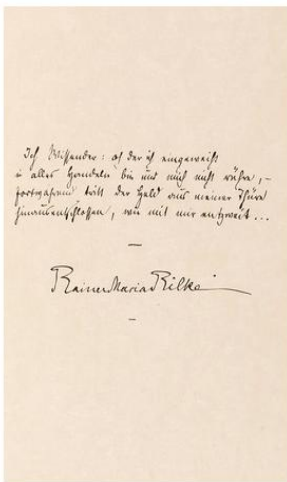 Ich Wissender: oh der ich eingeweiht
in alles Handeln bin und mich nicht rühre, –
fortwährend tritt der Held aus meiner Thüre
hinausentschlossen, wie mit mir entzweit...
–
Rainer Maria Rilke
–